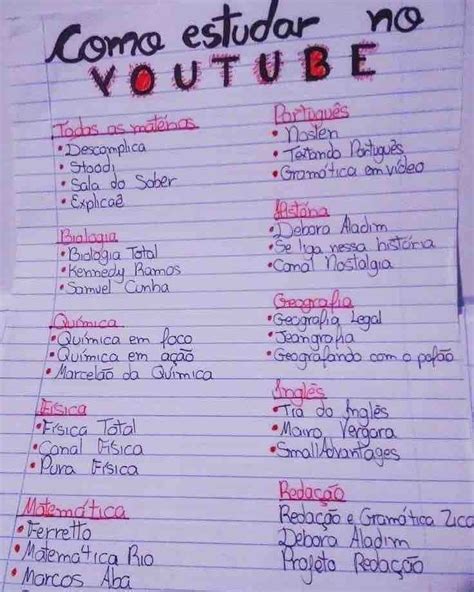 Como estudar no
YOUTUBE
Todas as matérias
• Descomplica
• Stoodi
• Sala do Saber
• Explicaê
Biologia
• Biologia Total
• Kennedy Ramos
• Samuel Cunha
Química
• Química em foco
• Química em ação
• Marcelão da Química
Física
• Física Total
• Canal Física
• Pura Física
Matemática
• Ferretto
• Matemática Rio
• Marcos Aba
Português
• Noslen
• Textando Português
• Gramática em vídeo
História
• Debora Aladim
• Se liga nessa história
• Canal Nostalgia
Geografia
• Geografia Legal
• Jeangrafia
• Geografando com o pafão
Inglês
• Tia do Inglês
• Mairo Vergara
• SmallAdvantages
Redação
Redação e Gramática Zica
Debora Aladim
Projeto Redação